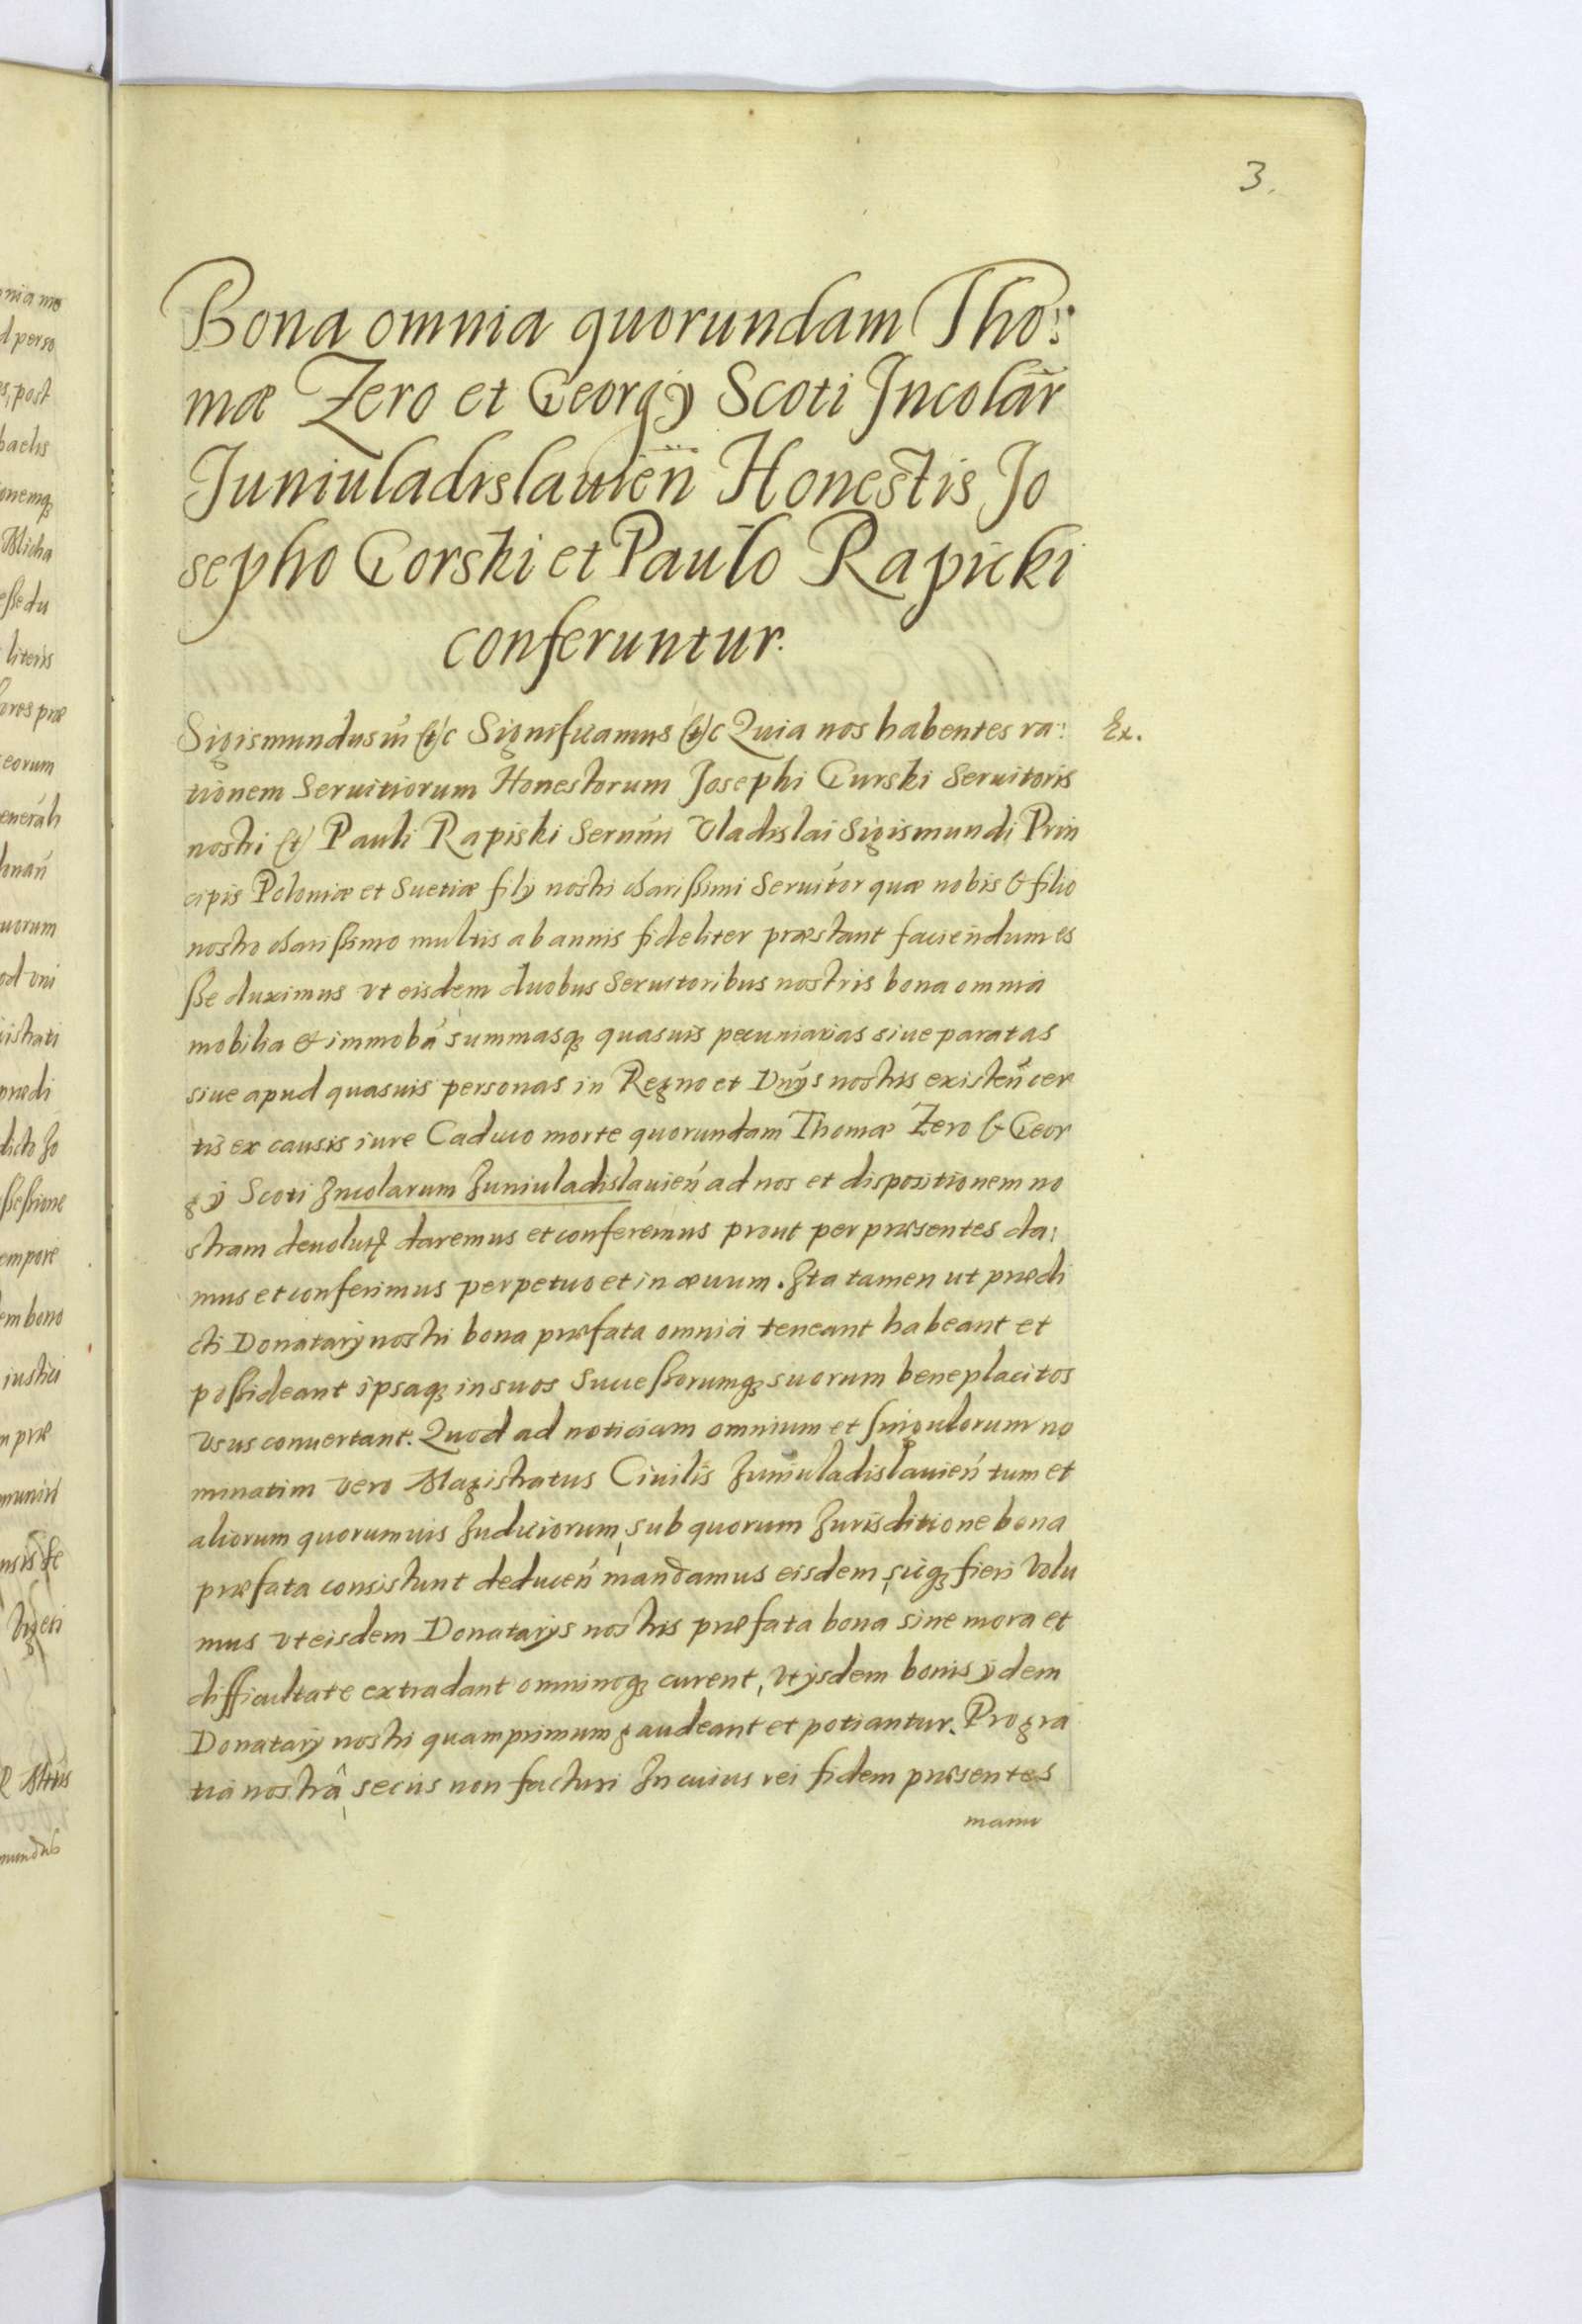 3.
Bona omnia quorundam Tho:
mæ Zero et Georgÿ Scoti Incolar̃
Juniuladislauień Honestis Jo
sepho Gorski et Paulo Rapicki
conferuntur.
Sigismundus III (et)c Significamus (et)c Quia nos habentes ra: Ex.
tionem Seruitiorum Honestorum Josephi Gurski Seruitoris
nostri (et) Pauli Rapiski Serńmi Vladislai Sigismundi Prin
cipis Poloniæ et Suetiæ filÿ nostri charißimi Seruitor quæ nobis & filio
nostro charißimo multis ab annis fideliter præstant faciendum es
ße duximus vt eisdem duobus Seruitoribus nostris bona omnia
mobilia & immobá summasq̃ quasuis pecuniarias siue paratas
siue apud quasuis personas in Regno et Dnÿs nostris existeń cer
tis ex causis iure Caduco morte quorundam Thomæ Zero & Geor
gÿ Scoti Incolarum Juniuladislauień ad nos et dispositionem no
stram deuolut̃ daremus et conferemus prout per præsentes da:
mus et conferimus perpetuo et in æuum. Ita tamen ut prædi
cti Donatarÿ nostri bona præfata omnia teneant habeant et
poßideant ipsaq̃ in suos Succeßorumq̃ suorum beneplacitos
vsus conuertant. Quod ad noticiam omnium et singulorum no
minatim vero Magistratus Ciuilis Juniuladislauień tum et
aliorum quorumuis Judiciorum, sub quorum Jurisditione bona
præfata consistunt deduceń mandamus eisdem, sicq̃ fieri volu
mus vt eisdem Donatarÿs nostris præfata bona sine mora et
difficultate extradant omninoq̃ curent, vt ÿsdem bonis ÿdem
Donatarÿ nostri quamprimum gaudeant et potiantur. Pro gra
tia nostrâ, secus non facturi In cuius rei fidem præsentes
manu